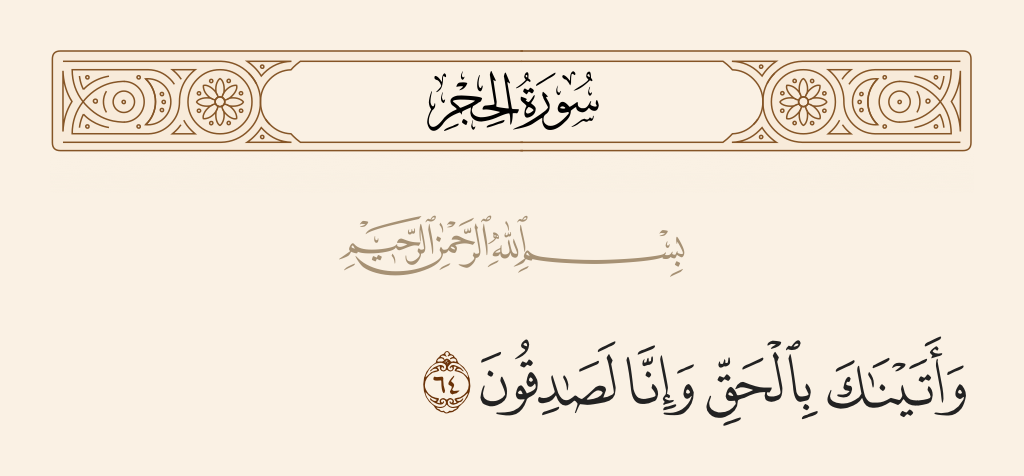 سُورَةُ الحِجْرِ
بِسْمِ ٱللَّهِ ٱلرَّحْمَٰنِ ٱلرَّحِيمِ
وَأَتَيْنَٰكَ بِٱلْحَقِّ وَإِنَّا لَصَٰدِقُونَ ٦٤